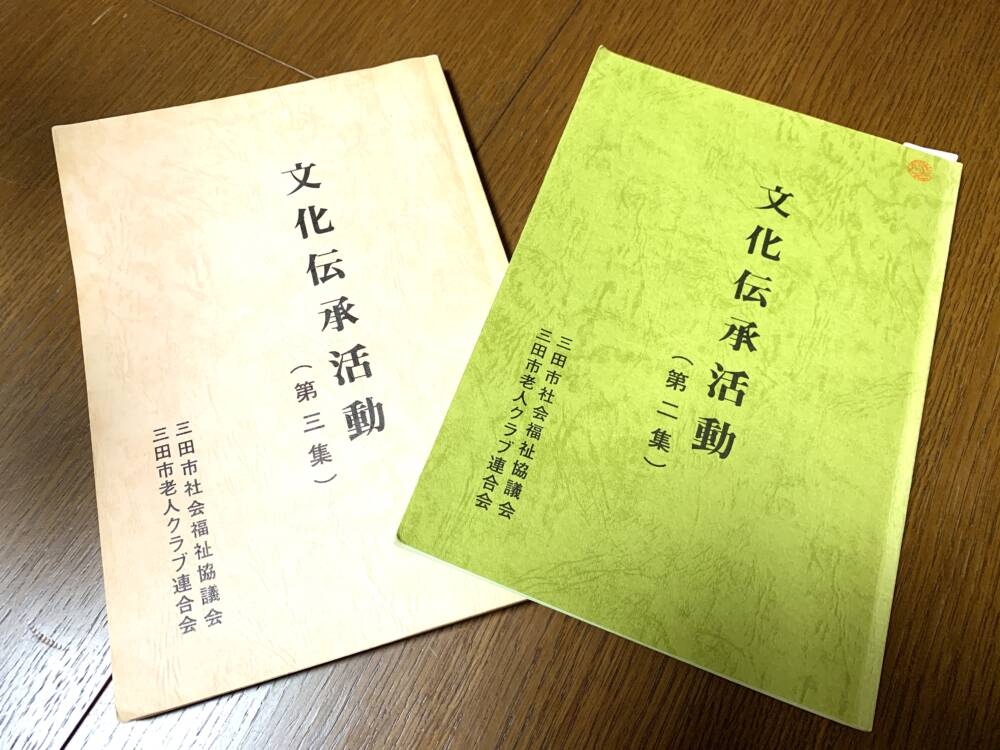 文化伝承活動
（第三集）
三田市社会福祉協議会
三田市老人クラブ連合会
文化伝承活動
（第二集）
三田市社会福祉協議会
三田市老人クラブ連合会